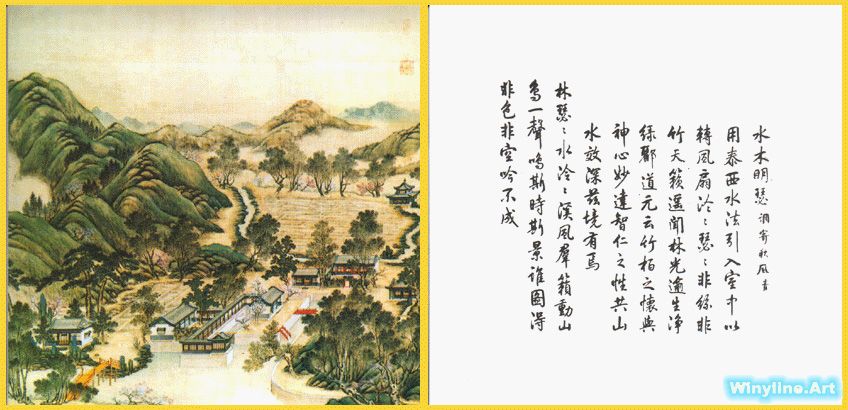 水木明瑟 調寄秋風清
用泰西水法引入室中以
轉風扇泠〻瑟〻非絲非
竹天籟遙聞林光逾生淨
綠酈道元云竹柏之懷與
神心妙達智仁之性共山
水效深茲境有焉
林瑟〻水泠〻溪風羣籟動山
鳥一聲鳴斯時斯景誰圖得
非色非空吟不成
Winyline.Art